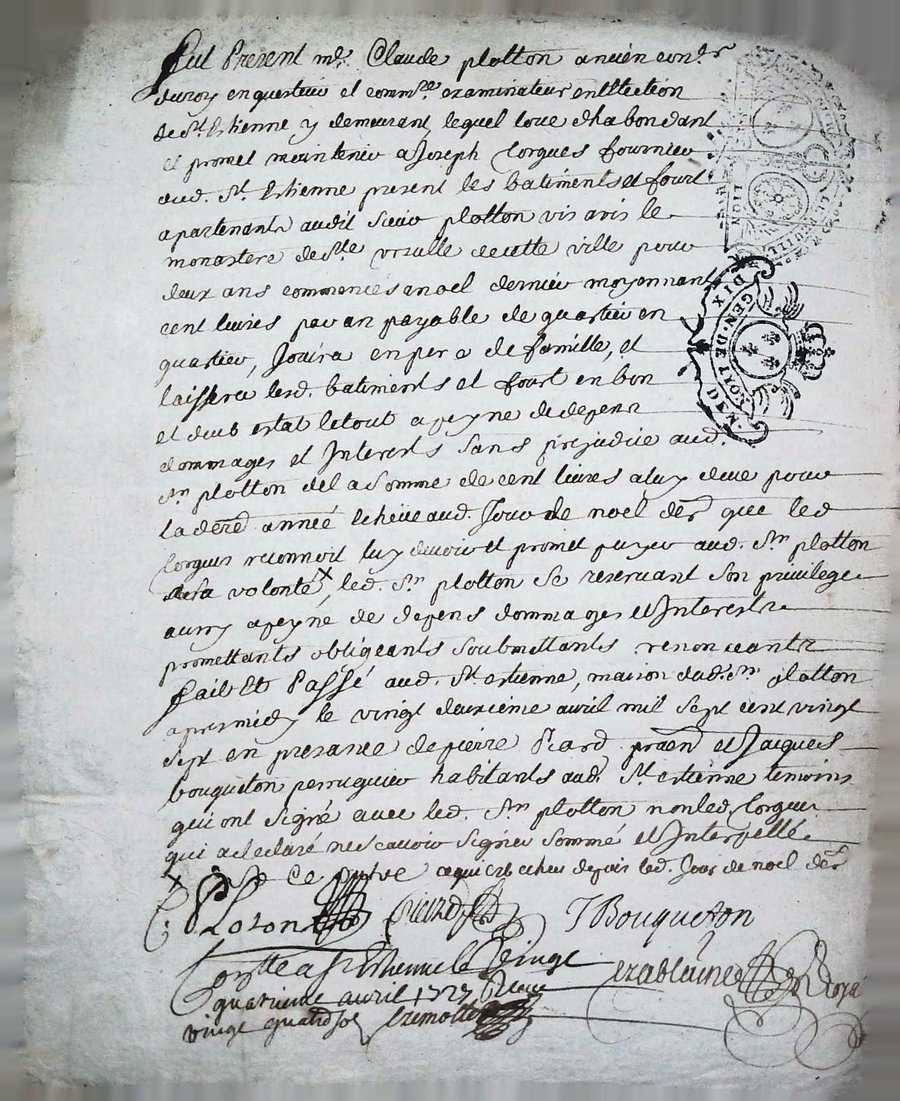 Fut Present me. Claude plotton ancien coner
du roy enquesteur et commre. examinateur en Ellection
de St. Estienne y demeurant, lequel loue & habondant
et promet maintenir a Joseph Corgues fournier
aud. St. Estienne present les batiments et fourt
apartenants audit sieur plotton vis avis le
monastere de Ste. ursulle de cette ville pour
deux ans commencés a noel dernier moyennant
cent livres par an payable de quartier en
quartier, Jouira en pere de famille, et
laissera lesd. batiments et fourt en bon
et deub estat le tout a peyne de depens
dommages et Interests sans prejudice aud.
Sr. plotton de la somme de cent livres a luy deue pour
la dere. année echeue aud. Jour de noel der que led
Corgues reconnoit luy devoir et promet payer aud. Sr. plotton
a sa volonté x, led. Sr. plotton se reservant son privilege
aussy a peyne de depens dommages et Interests
promettants obligeants soubmettants renonceants
Fait et Passé aud. St. estienne, maison dud. Sr. plotton
apres midy le vingt deuxieme avril mil sept cent vingt
sept en presance de pierre Picard praen et Jacques
bouqueton perruquier habitants aud. St. estienne temoins
qui ont signé avec led. Sr. plotton non led. Corgues
qui a declaré ne scavoir signer sommé et Interpellé
x ce qui est echeu depuis led. Jour de noel der
Plotton Picard J Bouqueton
Contte a St Estienne le vingt
quatrieme avril 1727
vingt quatre sol
GEN. DE LION
DIX DEN.